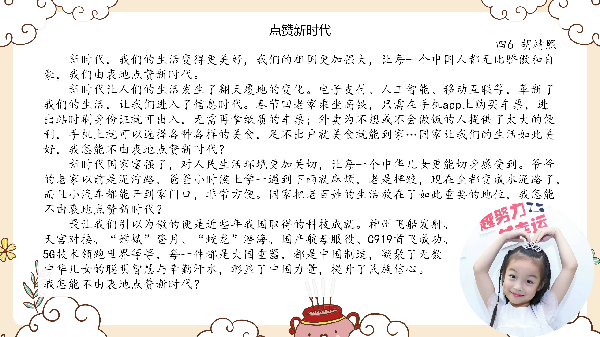 点赞新时代
四6
新时代,我们的生活变得更美好,我们的祖国更加强大,让每一个中国人都无比骄傲和自
豪,我们由衷地点赞新时代。
新时代让人们的生活发生了翻天覆地的变化。电子支付、人工智能、移动互联等,革新了
我们的生活,让我们进入了信息时代。春节回老家乘坐高铁,只需在手机app上购买车票,进
出站时刷身份证就可出入,无需再拿纸质的车票;外卖为不想或不会做饭的人提供了太大的便
利,手机上就可以选择各种各样的美食,足不出户就美食就能到家…国家让我们的生活如此美
好,我怎能不由衷地点赞新时代?
新时代国家富强了,对人民生活环境更加关切,让每一个中华儿女更能切身感受到。爷爷
的老家以前是泥泞路,爸爸小时候上学一遇到下雨就麻烦,老是摔跤,现在全都变成水泥路了,
而且小汽车都能开到家门口,非常方便。国家把老百姓的生活放在了如此重要的地位,我怎能
不由衷地点赞新时代?
最让我们引以为傲的便是近些年我国取得的科技成就。神州飞船发射、
天宫对接、“嫦娥”登月、“蛟龙”潜海、国产航母服役、C919首飞成功、
5G技术领跑世界等等,每一件都是大国重器,都是中国制造,凝聚了无数
中华儿女的聪明智慧与辛勤汗水,彰显了中国力量,提升了民族信心。
我怎能不由衷地点赞新时代?
越努力
幸运